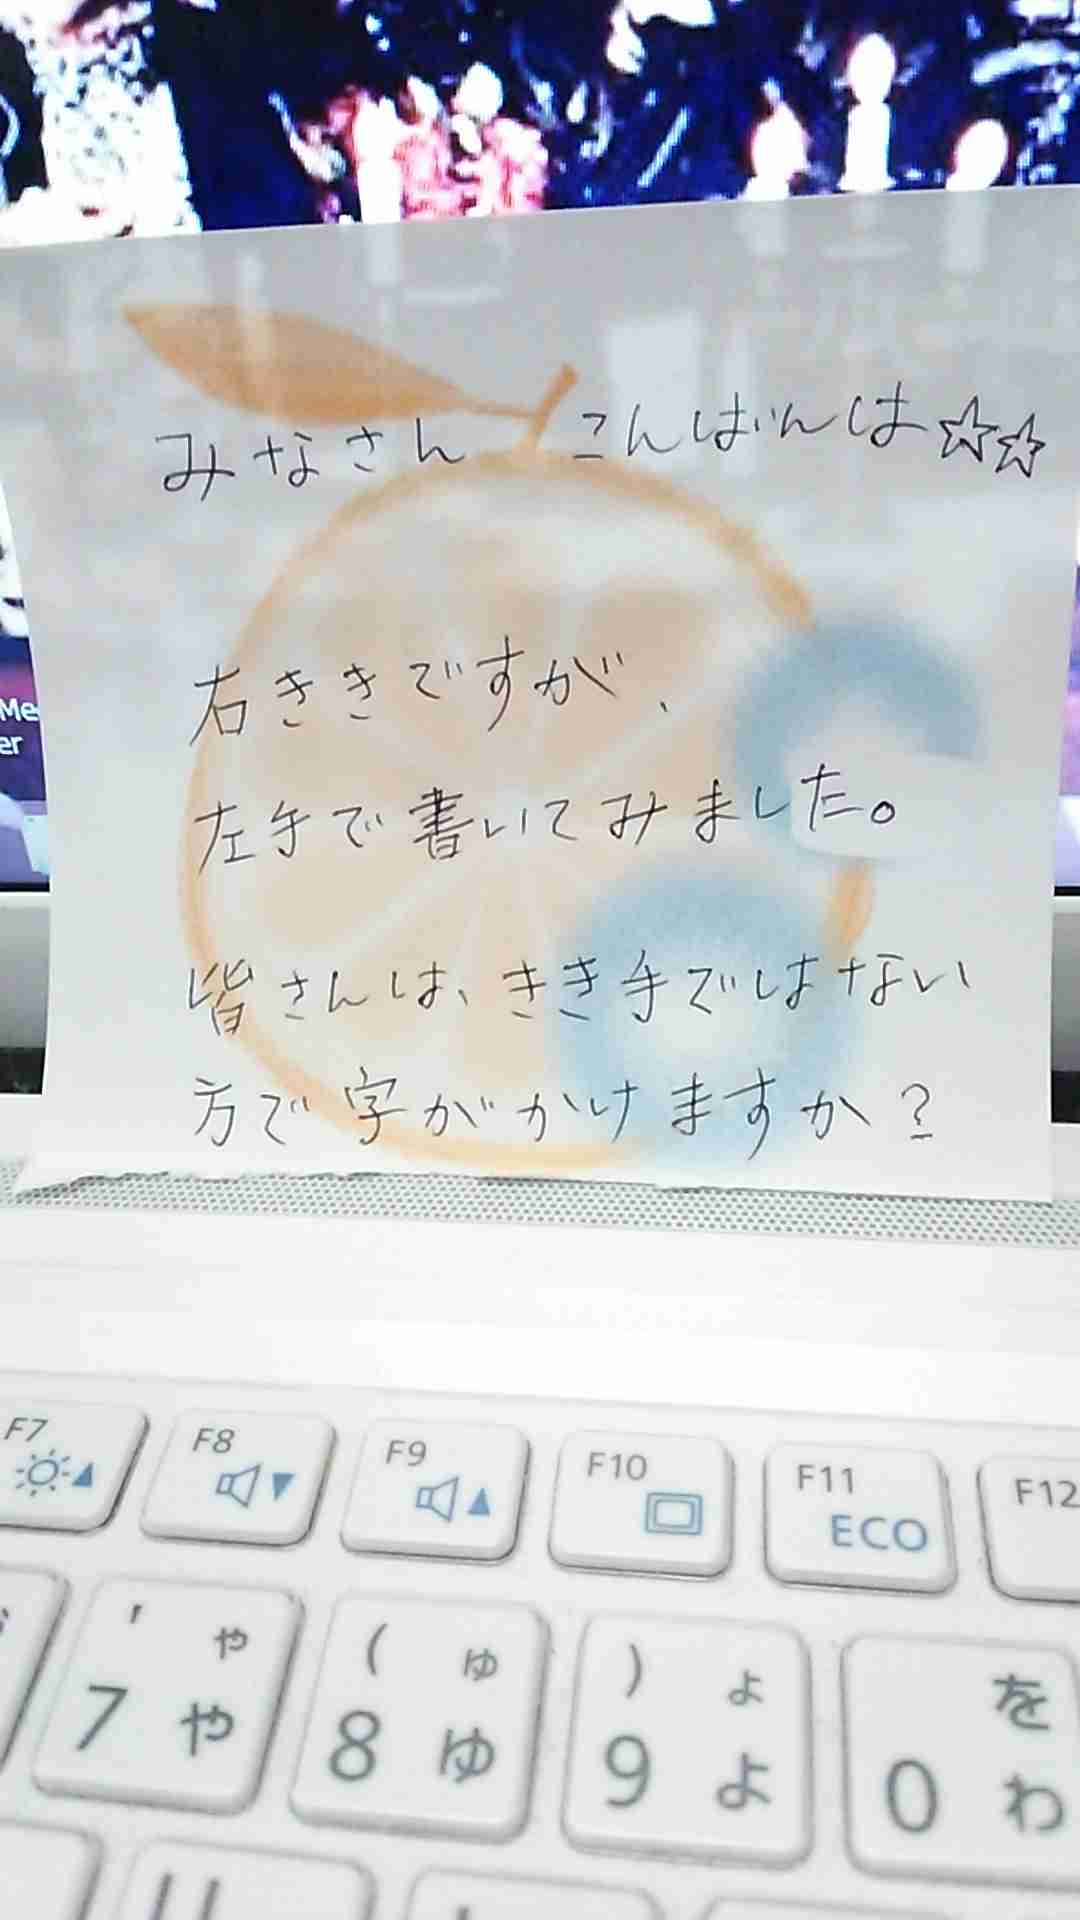 みなさん こんばんは☆☆
右ききですが、
左手で書いてみました。
皆さんは、きき手ではない
方で字がかけますか?
Me
er
F7
F8
F9
F10
F11
F12
ECO
' ゃ
7 や
( ゅ
8 ゆ
) ょ
9 よ
を
0 わ